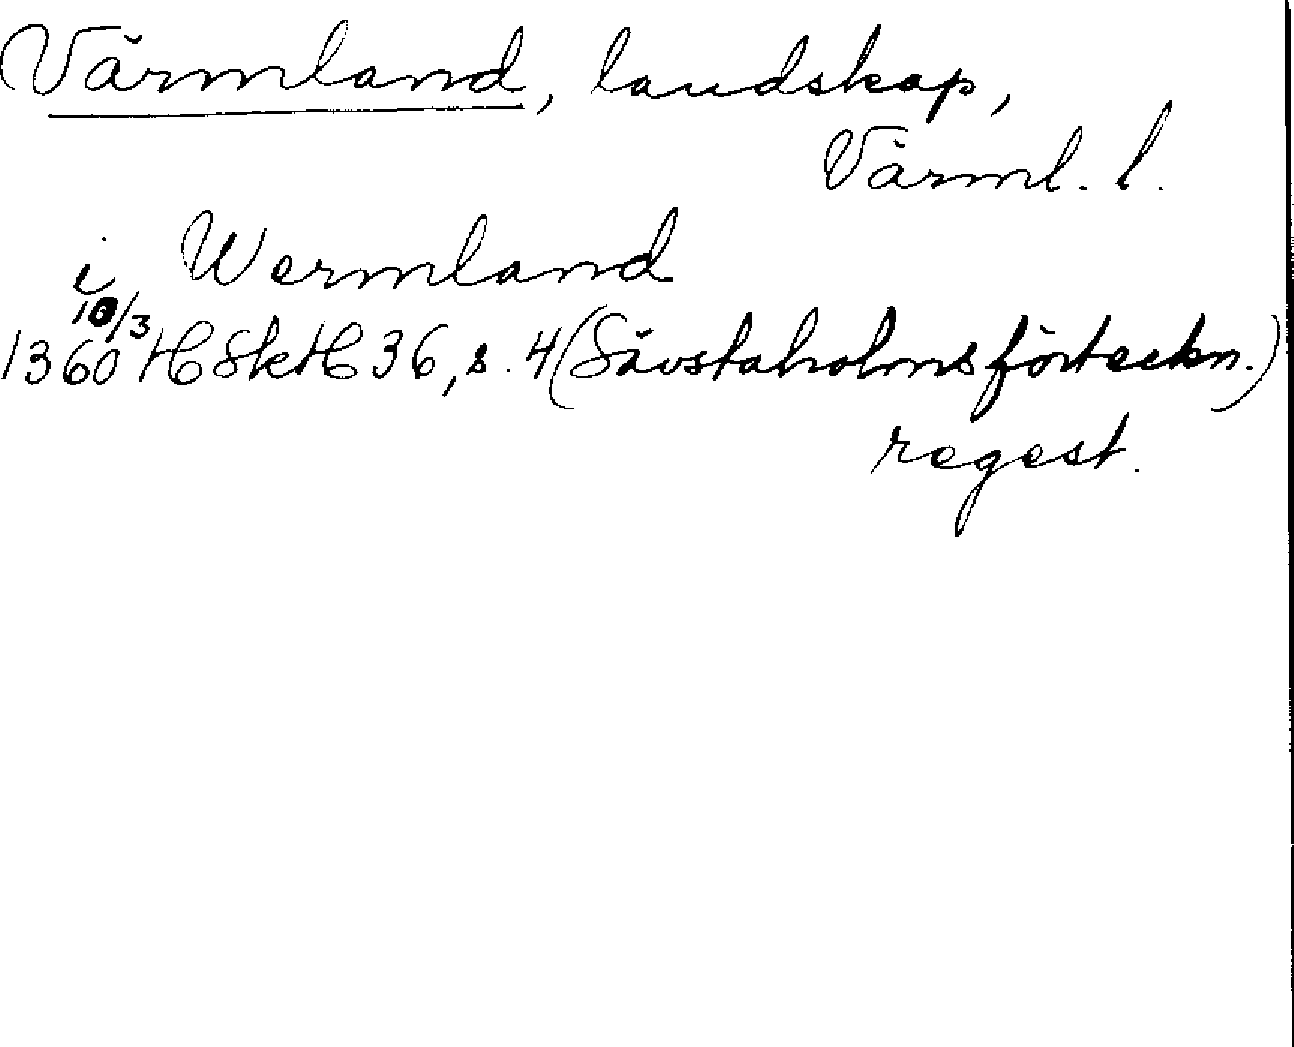 Värmland, landskap,
Värml. l.
i Wermland
10/3
1360 HSkH 36, s. 4 (Sävstaholmsförteckn.)
regest.